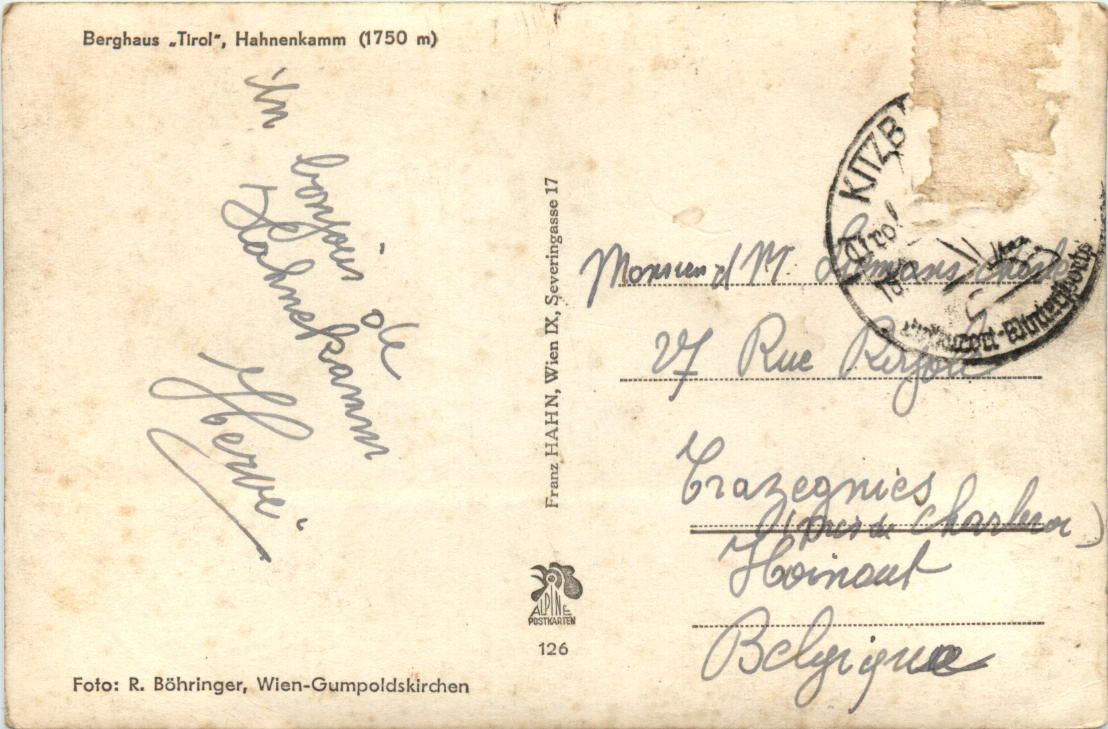 Berghaus „Tirol“, Hahnenkamm (1750 m)
Un bonjour
de
Hahnekamm
Hervé
Foto: R. Böhringer, Wien-Gumpoldskirchen
Franz HAHN, Wien IX, Severingasse 17
ALPINE
POSTKARTEN
126
KITZB
Tirol
Monsieur
27 Rue
Trazegnies
(près de Charleroi)
Hainaut
Belgique